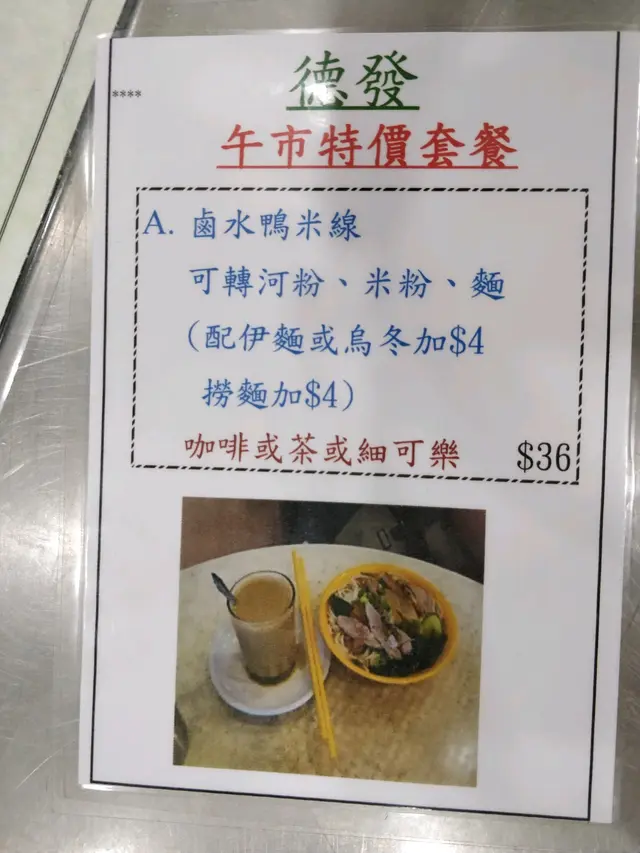 德發
****
午市特價套餐
A. 鹵水鴨米線
可轉河粉、米粉、麵
(配伊麵或烏冬加$4
撈麵加$4)
咖啡或茶或細可樂 $36